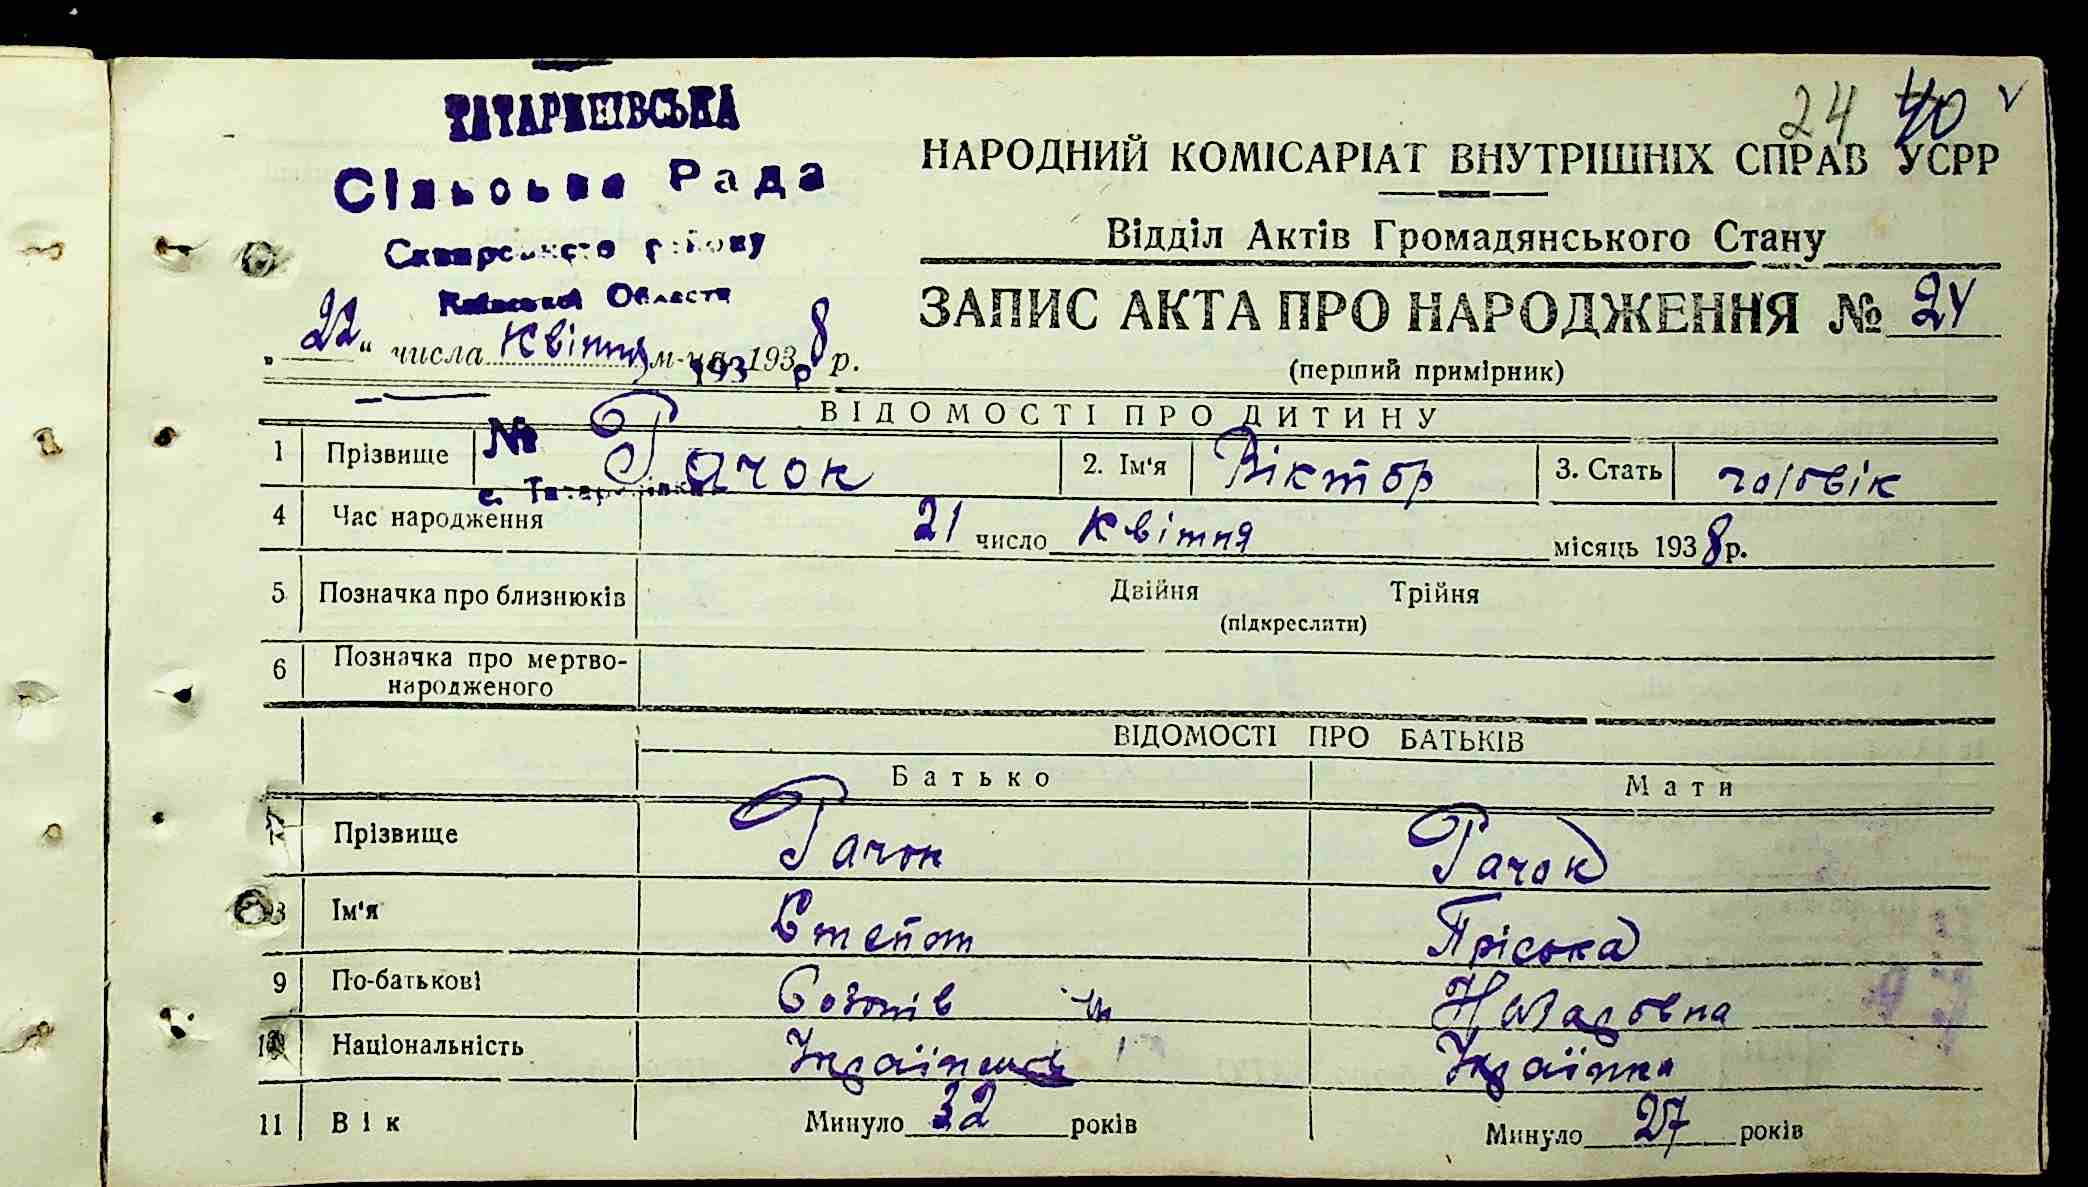 24 40 v
ТАТАРИНІВСЬКА
Сільська Рада
Сквирського району
Київської Области
„22“ числа Квітня м-ця 1938 р.
193 р
№
с. Татаринівка
НАРОДНИЙ КОМІСАРІАТ ВНУТРІШНІХ СПРАВ УСРР
Відділ Актів Громадянського Стану
ЗАПИС АКТА ПРО НАРОДЖЕННЯ № 24
(перший примірник)
ВІДОМОСТІ ПРО ДИТИНУ
1 Прізвище Рачок 2. Ім'я Віктор 3. Стать чоловік
4 Час народження 21 число Квітня місяць 1938 р.
5 Позначка про близнюків Двійня Трійня
(підкреслити)
6 Позначка про мертво-
народженого
ВІДОМОСТІ ПРО БАТЬКІВ
Батько Мати
7 Прізвище Рачок Рачок
8 Ім'я Степан Пріська
9 По-батькові Созонів Назаровна
10 Національність Українець Українка
11 Вік Минуло 32 років Минуло 27 років